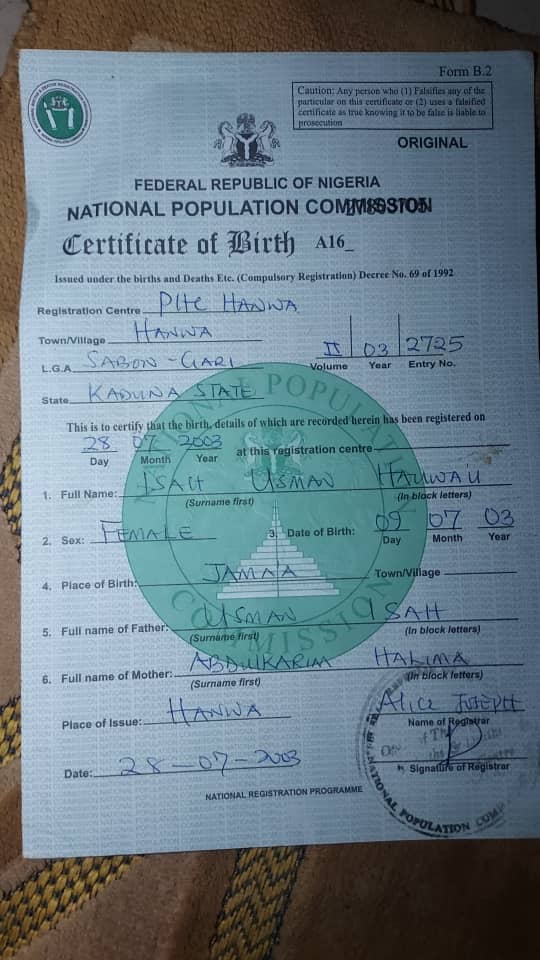 Form B.2
Caution: Any person who (1) Falsifies any of the
particular on this certificate or (2) uses a falsified
certificate as true knowing it to be false is liable to
prosecution
ORIGINAL
FEDERAL REPUBLIC OF NIGERIA
NATIONAL POPULATION COMMISSION
Certificate of Birth A16_
Issued under the births and Deaths Etc. (Compulsory Registration) Decree No. 69 of 1992
Registration Centre PHC HANWA
Town/Village HANWA
II 03 2725
L.G.A SABON-GARI
Volume Year Entry No.
State KADUNA STATE
This is to certify that the birth, details of which are recorded herein has been registered on
28 07 2003 at this registration centre
Day Month Year
1. Full Name: ISAH USMAN HAUWA'U
(Surname first) (In block letters)
2. Sex: FEMALE 3. Date of Birth: 09 07 03
Day Month Year
4. Place of Birth: JAMA'A Town/Village
5. Full name of Father: USMAN ISAH
(Surname first) (In block letters)
6. Full name of Mother: ABDULKARIM HALIMA
(Surname first) (In block letters)
Place of Issue: HANWA Alice JOSEPH
Name of Registrar
Date: 28-07-2003
Signature of Registrar
NATIONAL REGISTRATION PROGRAMME
NATIONAL POPULATION COMMISSION
NATIONAL POPULATION